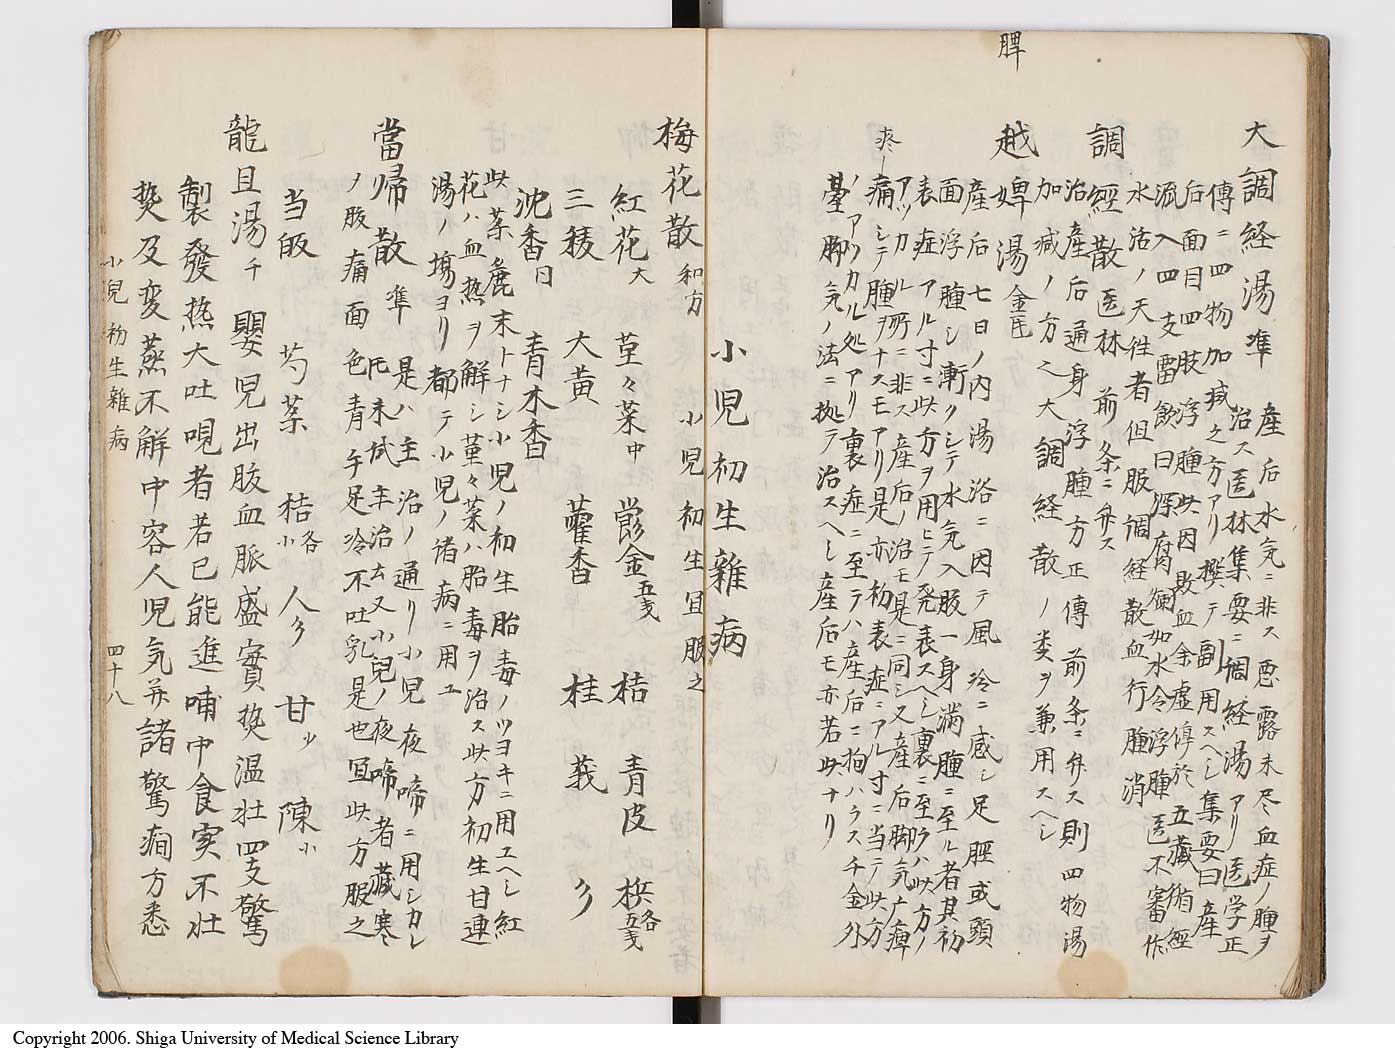 脾
大調経湯 準 産后水気ニ非ス悪露未尽血症ノ腫ヲ
治ス医林集要ニ調経湯アリ医学正
傳ニ四物加减之方アリ撰テ副用スヘシ集要曰産
后面目四肢浮腫此因敗血余虚停於五藏循経
流入四支雷飲曰深腐𤓰如水冷浮腫医不審作
水治ノ天徃者但服調経散血行腫消
調経散 医林 前条ニ弁ス
治産后通身浮腫方正傳前条ニ弁ス則四物湯
加减ノ方之大調経散ノ类ヲ兼用スヘシ
越婢湯 金匱
産后七日ノ内湯浴ニ因テ風冷ニ感シ足脛或頭
面浮腫シ漸クシテ水気入腹一身満腫ニ至ル者其初
表症アル寸ニ此方ヲ用ヒテ発表スヘシ裏ニ至ラハ此方ノ
アツカル所ニ非ス産后ノ治モ是ニ同シ又産后脚気疒痺
疼痛シテ腫ヲナスモアリ是亦初表症ニアル寸ニ当テ此方
ノアツカル処アリ裏症ニ至テハ産后ニ拘ハラス千金外
臺脚気ノ法ニ拠テ治スヘシ産后モ亦若此ナリ
小児初生雜病
小児初生宜服之
梅花散 和方
紅花大 堇々菜中 欝金五戔 桔 青皮 梹各五戔
三稜 大黄 藿香 桂 莪 夕
沈香日 青木香
此薬麁末トナシ小児ノ初生胎毒ノツヨキニ用ユヘシ紅
花ハ血热ヲ解シ堇々菜ハ胎毒ヲ治ス此方初生甘連
湯ノ塲ヨリ都テ小児ノ諸病ニ用ユ
當帰散 準 是ハ主治ノ通リ小児夜啼ニ用シカレ
𪜈未試主治云又小兒ノ夜啼者藏寒
ノ腹痛面色青手足冷不吐乳是也宜此方服之
当皈 芍薬 桔各小 人夕 甘少 陳小
龍且湯 千 嬰児出腹血脈盛實𤍠温壮四支驚
製發𤍠大吐哯者若已能進哺中食実不壮
𤍠及変蒸不解中容人児気并諸驚癇方悉
小児初生雜病
四十八
Copyright 2006. Shiga University of Medical Science Library